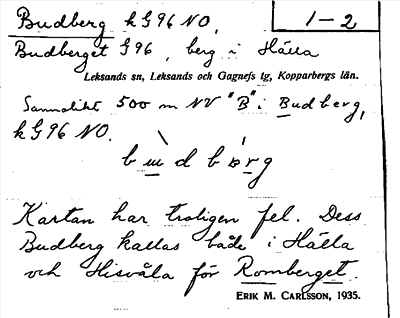 Budberg k G 96 NO,
1-2
Budberget G 96, berg i Hälla
Leksands sn, Leksands och Gagnefs tg, Kopparbergs län.
Sannolikt 500 m NV "B" i Budberg,
k G 96 NO.
b d b r g
Kartan har troligen fel. Dess
Budberg kallas både i Hälla
och Hisvåla för Romberget.
ERIK M. CARLSSON, 1935.